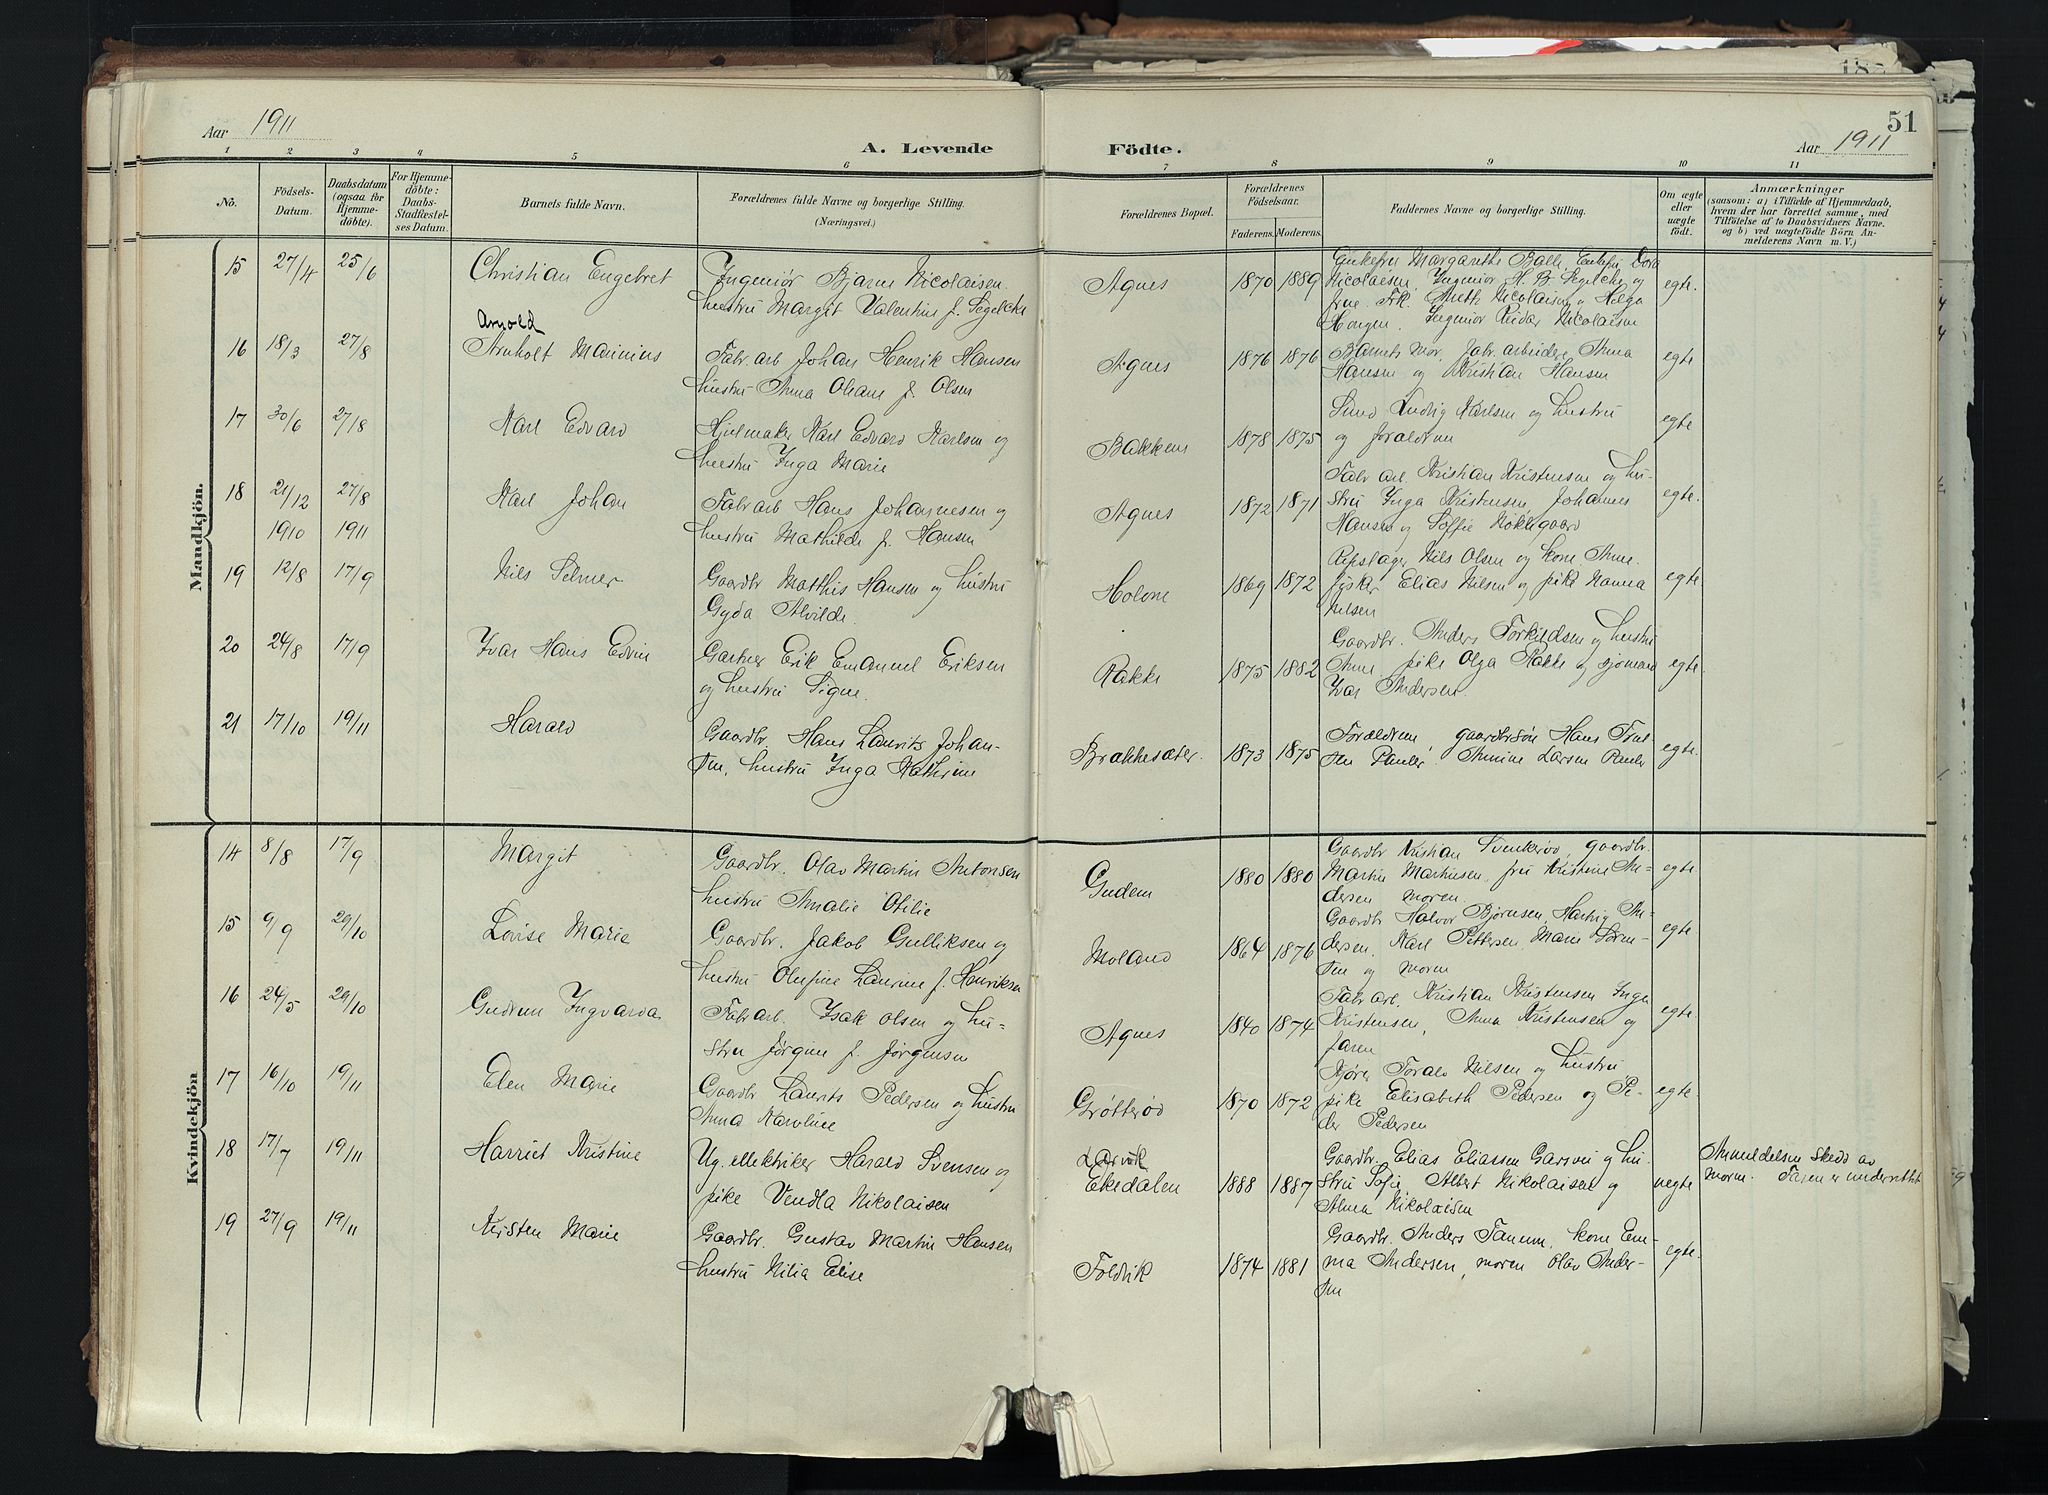 Aar 1911
A. Levende
1 2 3 4 5 6
No.
Födsels-Datum.
Daabsdatum (ogsaa for Hjemmedöbte).
For Hjemmedöbte: Daabs-Stadfæstelses Datum.
Barnets fulde Navn.
Forældrenes fulde Navne og borgerlige Stilling. (Næringsvei.)
Födte.
51
Aar 1911
7 8 9 10 11
Forældrenes Bopæl.
Forældrenes Födselsaar.
Faderens. Moderens.
Faddernes Navne og borgerlige Stilling.
Om ægte eller uægte födt.
Anmærkninger
(saasom: a) i Tilfælde af Hjemmedaab,
hvem der har forrettet samme, med
Tilföielse af to Daabsvidners Navne.
og b) ved uægtefödte Börn An-
melderens Navn m. V.)
Mandkjön.
15 27/4 25/6 Christian Engebret
Ingeniør Bjarne Nicolaisen.
hustru Margit Valentine f. Segelcke
Agnes 1870 1889
Enkefru Margarethe Balle, Enkefru Dora
Nicolaisen, Ingeniør H. B. Segelcke og
frue. Frk. Nicolaisen Helga
Ingeniør Reidar Nicolaisen
egte.
16 18/3 27/8 Arnold
Arnholt Marinius
Fabr. arb Johan Henrik Hansen
hustru Anna Oliane f. Olsen
Agnes 1876 1876
Barnets Mor, fabr. arbeidere Anna
Hansen og Kristian Hansen
egte
17 30/6 27/8 Karl Edvard
Hjulmaker Karl Edvard Karlsen og
hustru Inga Marie
Bakken 1878 1875
Ludvig Karlsen og hustru
og foraldrene
egte
18 21/12 1910 27/8 1911 Karl Johan
Fabr arb Hans Johannesen og
hustru Mathilde f. Hansen
Agnes 1872 1871
Fabr arb. Kristian Kristensen og hu-
stru Inga Kristensen, Johannes
Hansen og Soffie
egte.
19 12/8 17/9 Nils Selmer
Gaardbr Matthis Hansen og hustru
Gyda Alvilde.
Holone 1869 1872
Repslager Nils Olsen og kone Anne.
Elias Nilsen og pike Hanna
Nilsen
egte
20 24/8 17/9 Ivar Hans Edvin
Gartner Erik Emanuel Eriksen
og hustru Signe.
Rakke 1875 1882
Gaardbr. Anders Torkildsen og hustru
Anne, pike Olga Rakke og sjømand
Ivar Andersen.
egte.
21 17/10 19/11 Harald
Gaardbr. Hans Laurits Johan-
sen, hustru Inga Kathrine
Brækkesæter. 1873 1875
Foraldrene, gaardbrsøn Hans Trul-
sen Pauler. Annine Larsen Pauler
egte.
Kvindekjön
14 8/8 17/9 Margit
Gaardbr. Olav Martin Antonsen
hustru Amalie Otilie
Gudem 1880 1880
Gaardbr Kristian gaardbr.
Martin Martinsen, fru Kristine An-
dersen moren.
egte.
15 9/9 29/10 Lovise Marie
Gaardbr. Jakob Gulliksen og
hustru Olufine Laurine f. Henriksen
Moland 1864 1876
Gaardbr Halvor Bjørnsen, Hartvig An-
dersen, Karl Pettersen, Marie Søren-
sen og moren
egte.
16 24/5 29/10 Gudrun Ingvarda
Fabr arb. Isak Olsen og hu-
stru Jørgine f. Jørgensen
Agnes 1840 1874
Fabr arb. Kristian Kristensen Inga
Kristensen, Anna Kristensen og
faren
egte.
17 16/10 19/11 Elen Marie
Gaardbr Laurits Pedersen og hustru
Anna Karoline
Grøtterød 1870 1872
Torald Nilsen og hustru,
pike Elisabeth Pedersen og Pe-
der Pedersen
egte.
18 17/7 19/11 Harriet Kristine
Ug. ellektriker Harald Svensen og
pike Vendla Nikolaisen
Larvik
Ekedalen 1888 1887
Gaardbr. Elias Eliassen og hu-
stru Sofie, Albert Nikolaisen og
Alma Nikolaisen
uegte
Anmeldelsen skedd av
moren. Faren er underrettet
19 27/9 19/11 Kirsten Marie
Gaardbr. Gustav Martin Hansen
hustru Nilia Elise
Foldvik 1874 1881
Gaardbr. Anders Tanum, kone Em-
ma Andersen, moren Olav Ander-
sen
egte.